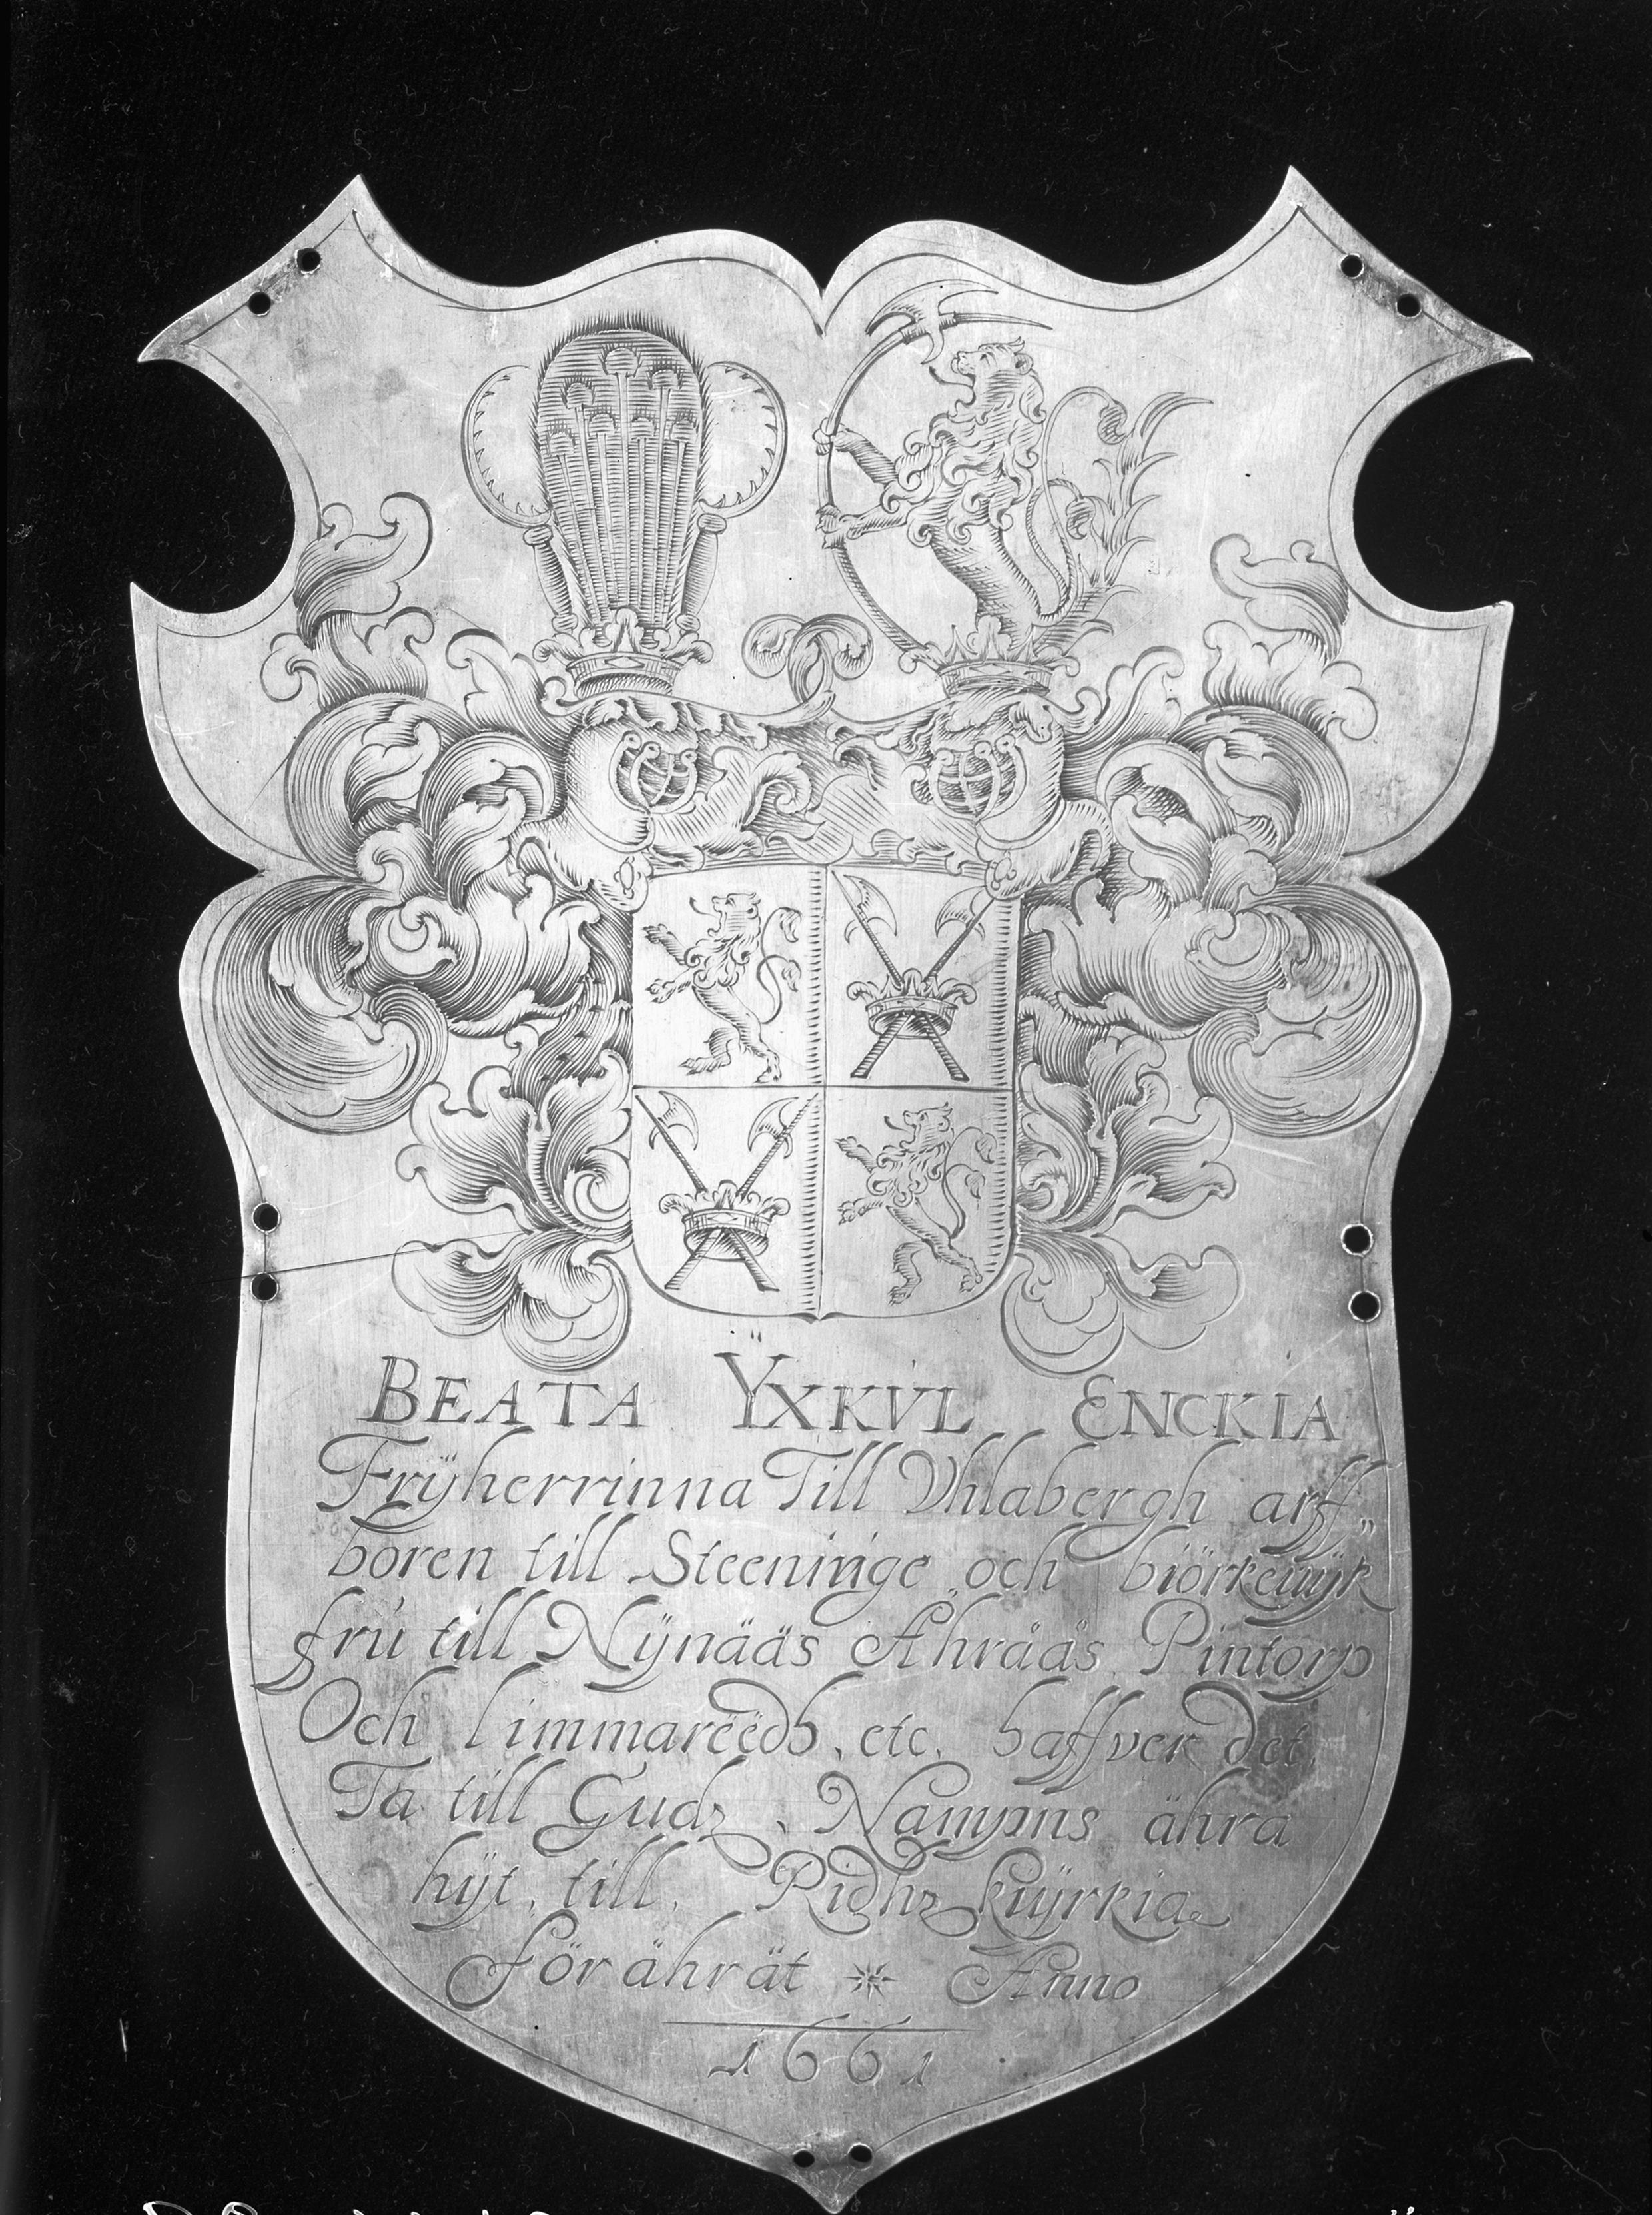 BEATA ŸXKVL ENCKIA
Frÿherrinna Till Vhlabergh arff„
boren till Steeninge och biörkewijk
frú till Nÿnääs Ahrääs Pintorp
Och limmarëëdh. etc. haffver det
Ta till Gudz Nampns ähra
hÿt. till. Ridhz kiÿrkia
förährät * Anno
1661